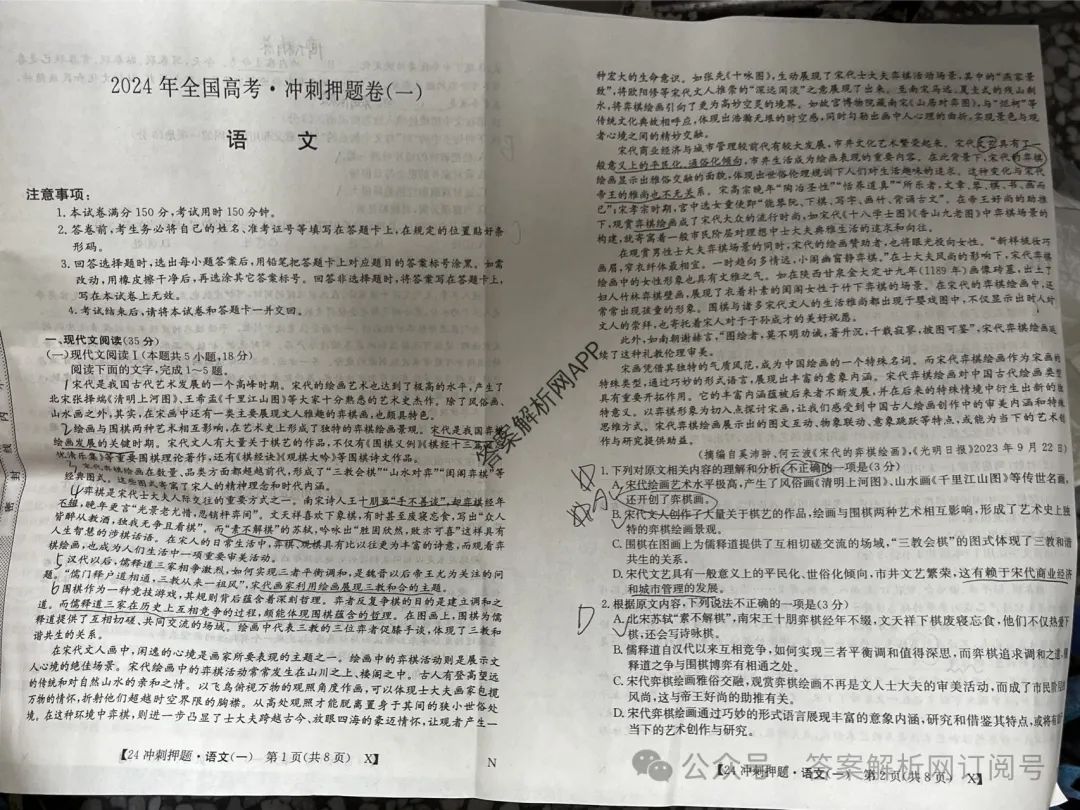 2024年全国高考·冲刺押题卷(一)
语 文
注意事项：
1.本试卷满分150分,考试用时150分钟。
2.答卷前,考生务必将自己的姓名、准考证号等填写在答题卡上,在规定的位置贴好条
形码。
3.回答选择题时,选出每小题答案后,用铅笔把答题卡上对应题目的答案标号涂黑。如需
改动,用橡皮擦干净后,再选涂其它答案标号。回答非选择题时,将答案写在答题卡上,
写在本试卷上无效。
4.考试结束后,请将本试卷和答题卡一并交回。
一、现代文阅读(35分)
(一)现代文阅读Ⅰ(本题共5小题,18分)
阅读下面的文字,完成1～5题。
宋代是我国古代艺术发展的一个高峰时期。宋代的绘画艺术也达到了极高的水平,产生了
北宋张择端《清明上河图》、王希孟《千里江山图》等大家十分熟悉的艺术史杰作。除了风俗画、
山水画之外,其实,在宋画中还有一类主要展现文人雅趣的弈棋画,也颇具特色。
绘画与围棋两种艺术相互影响,在艺术史上形成了独特的弈棋绘画景观。宋代是我国弈棋
绘画发展的关键时期。宋代文人有大量关于棋艺的作品,不仅有《围棋义例》《棋经十三篇》
《忘忧清乐集》等重要围棋理论著作,还有《棋经诀》《观棋大吟》等围棋诗文作品。
宋代弈棋绘画在数量、品类方面都超越前代,形成了“三教会棋”“山水对弈”“闺阁弈棋”等
经典图式。这些图式寄寓了宋人的精神理念和时代内涵。
弈棋是宋代士大夫人际交往的重要方式之一。南宋诗人王十朋虽“手不善谈”,却弈棋经年
不辍,晚年更言“光景老尤惜,思销枰弈间”。文天祥喜欢下象棋,有时甚至废寝忘食,写出“众人
皆醉从教酒,独我无争且看棋”。而“素不解棋”的苏轼,吟咏出“胜固欣然,败亦可喜”这样具有
人生智慧的涉棋话语。在宋人的日常生活中,弈棋、观棋具有比以往更为丰富的诗意,而观看弈
棋绘画,也成为人们生活中一项重要审美活动。
汉代以后,儒释道三家相争激烈,如何实现三者平衡调和,是魏晋以后帝王尤为关注的问
题。“儒门释户道相通,三教从来一祖风”,宋代画家利用绘画展现三教和合的主题。
围棋作为一种竞技游戏,其规则背后蕴含着深刻哲理。弈者反复争棋的目的是建立调和之
道。而儒释道三家在历史上互相竞争的过程,颇能体现围棋蕴含的哲理。在图画上,围棋为儒
释道提供了互相切磋、共同交流的场域。绘画中代表三教的三位弈者促膝手谈,体现了三教和
谐共生的关系。
在宋代文人画中,闲逸的心境是画家所要表现的主题之一。绘画中的弈棋活动则是展示文
人心境的绝佳场景。宋代绘画中的弈棋活动常常发生在山川之上、楼阁之中。古人有登高望远
的传统和对自然山水的亲和之情。以飞鸟俯视万物的观照角度作画,可以体现士大夫画家包揽
万物的情怀,折射他们超越时空界限的胸襟。从高处观照才能脱离置身于其间的狭小世俗处
境。在这种环境中弈棋,则进一步凸显了士大夫跨越古今、放眼四海的豪迈情怀,让观者产生一
【24冲刺押题·语文(一) 第1页(共8页) X】
N
种宏大的生命意识。如张先《十咏图》,生动展现了宋代士大夫弈棋活动场景,其中的“燕家景
致”,将欧阳修等宋代文人推崇的“深远闲淡”之意展现了出来。至南宋马远、夏圭式的残山剩
水,将弈棋绘画引向了更为高妙空灵的境界。如故宫博物院藏南宋《山居对弈图》,与“烂柯”等
传统文化典故相呼应,体现出浩瀚无垠的时空感,同时勾勒出画中人心理的曲折,实现景色与观
者心境之间的精妙交融。
宋代商业经济与城市管理较前代有较大发展,市井文化艺术繁荣起来。宋代文艺具有了一
般意义上的平民化、通俗化倾向,市井生活成为绘画表现的重要内容。在此背景下,宋代的弈棋
绘画显示出雅俗交融的面貌,体现出世俗伦理规训下人们对生活趣味的追求。这种变化与宋代
帝王的雅尚也不无关系。宋高宗晚年“陶冶圣性”“恬养道真”“所乐者,文章、琴、棋、书、画而
已”;宋孝宗时期,宫中选女童使即“能琴阮、下棋、写字、画竹、背诵古文”。在帝王好尚的助推
下,观赏弈棋绘画成了宋代大众的流行时尚,如宋代《十八学士图》《香山九老图》中弈棋场景的
构建,就寄寓着一般市民阶层对理想中士大夫典雅生活的追求和向往。
在观赏男性士大夫弈棋场景的同时,宋代的绘画赞助者,也将眼光投向女性。“新样梳妆巧
画眉,窄衣纤体最相宜。一时趋向多情逸,小阁幽窗静弈棋。”在士大夫风尚的影响下,宋代弈棋
绘画中的女性形象也具有文雅之气。如在陕西甘泉金大定廿九年(1189年)画像砖墓,出土了
妇人竹林弈棋壁画,展现了衣着朴素的闺阁女性于竹下弈棋的场景。在宋代的弈棋绘画中,还
常常出现孩童的形象。围棋与诸多宋代文人的生活雅尚都出现于婴戏图中,不仅显示出时人对
文人的崇拜,也寄托着宋人对于子孙成才的美好祝愿。
此外,如南朝谢赫言,“图绘者,莫不明劝诫,著升沉,千载寂寥,披图可鉴”,宋代弈棋绘画延
续了这种礼教伦理审美。
宋画凭借其独特的气质风范,成为中国绘画的一个特殊名词。而宋代弈棋绘画作为宋画的
特殊类型,通过巧妙的形式语言,展现出丰富的意象内涵。宋代弈棋绘画对中国古代绘画类型
具有重要开拓作用。它的丰富内涵蕴被后来者不断发展,并在后来的特殊情境中衍生出新的独
特意义。以弈棋形象为初入点探讨宋画,让我们感受到中国古人绘画创作中的审美内涵和特殊
思维方式。宋代弈棋绘画展示出的图文互动、物象联动、意象跳跃等特点,或能为当下的艺术创
作与研究提供助益。
(摘编自吴沛翀、何云波《宋代的弈棋绘画》,《光明日报》2023年9月22日)
1.下列对原文相关内容的理解和分析,不正确的一项是(3分)
A.宋代绘画艺术水平极高,产生了风俗画《清明上河图》、山水画《千里江山图》等传世名画,
还开创了弈棋画。
B.宋代文人创作了大量关于棋艺的作品,绘画与围棋两种艺术相互影响,形成了艺术史上独
特的弈棋绘画景观。
C.围棋在图画上为儒释道提供了互相切磋交流的场域,“三教会棋”的图式体现了三教和谐
共生的关系。
D.宋代文艺具有一般意义上的平民化、世俗化倾向,市井文艺繁荣,这有赖于宋代商业经济
和城市管理的发展。
2.根据原文内容,下列说法不正确的一项是(3分)
A.北宋苏轼“素不解棋”,南宋王十朋弈棋经年不辍,文天祥下棋废寝忘食,他们不仅热爱下
棋,还会写诗咏棋。
B.儒释道自汉代以来互相竞争,如何实现三者平衡调和值得深思,而弈棋追求调和之道,儒
释道之争与围棋博弈有相通之处。
C.宋代弈棋绘画雅俗交融,观赏弈棋绘画不再是文人士大夫的审美活动,而成了市民阶层的
风尚,这与帝王好尚的助推有关。
D.宋代弈棋绘画通过巧妙的形式语言展现丰富的意象内涵,研究和借鉴其特点,或将有助于
当下的艺术创作与研究。
【24冲刺押题·语文(一) 第2页(共8页) X】
答案解析网APP
公众号 · 答案解析网订阅号